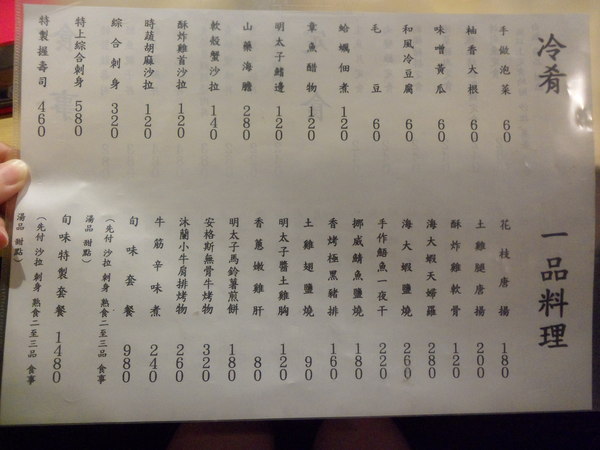 冷肴
手做泡菜 60
柚香大根 60
味噌黃瓜 60
和風冷豆腐 60
毛豆 60
蛤蠣佃煮 120
章魚醋物 120
明太子鰭邊 120
山藥海膽 280
軟殼蟹沙拉 140
酥炸雞首沙拉 120
時蔬胡麻沙拉 120
綜合刺身 320
特上綜合刺身 580
特製握壽司 460
一品料理
花枝唐揚 180
土雞腿唐揚 200
酥炸雞軟骨 120
海大蝦天婦羅 280
海大蝦鹽燒 260
手作鯃魚一夜干 220
挪威鯖魚鹽燒 180
香烤極黑豬排 160
土雞翅鹽燒 90
明太子醬土雞胸 120
香蔥嫩雞肝 80
明太子馬鈴薯煎餅 180
安格斯無骨牛烤物 320
沐蘭小牛肩排烤物 260
牛筋辛味煮 240
旬味套餐 980
(先付 沙拉 刺身 熟食二至三品 食事
湯品 甜點)
旬味特製套餐 1480
(先付 沙拉 刺身 熟食二至三品 食事
湯品 甜點)